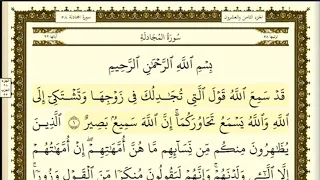 سورة المجادلة ٥٨
الجزء الثامن والعشرون
سُورَةُ المُجَادلَةِ
بِسْمِ اللَّهِ الرَّحْمَٰنِ الرَّحِيمِ
قَدْ سَمِعَ اللَّهُ قَوْلَ الَّتِي تُجَٰدِلُكَ فِي زَوْجِهَا وَتَشْتَكِي إِلَى
اللَّهِ وَاللَّهُ يَسْمَعُ تَحَاوُرَكُمَا إِنَّ اللَّهَ سَمِيعٌ بَصِيرٌ ١ الَّذِينَ
يُظَٰهِرُونَ مِنكُم مِّن نِّسَآئِهِم مَّا هُنَّ أُمَّهَٰتِهِمْ إِنْ أُمَّهَٰتُهُمْ
إِلَّا الَّٰٓـِٔي وَلَدْنَهُمْ وَإِنَّهُمْ لَيَقُولُونَ مُنكَرًا مِّنَ الْقَوْلِ وَزُورًا